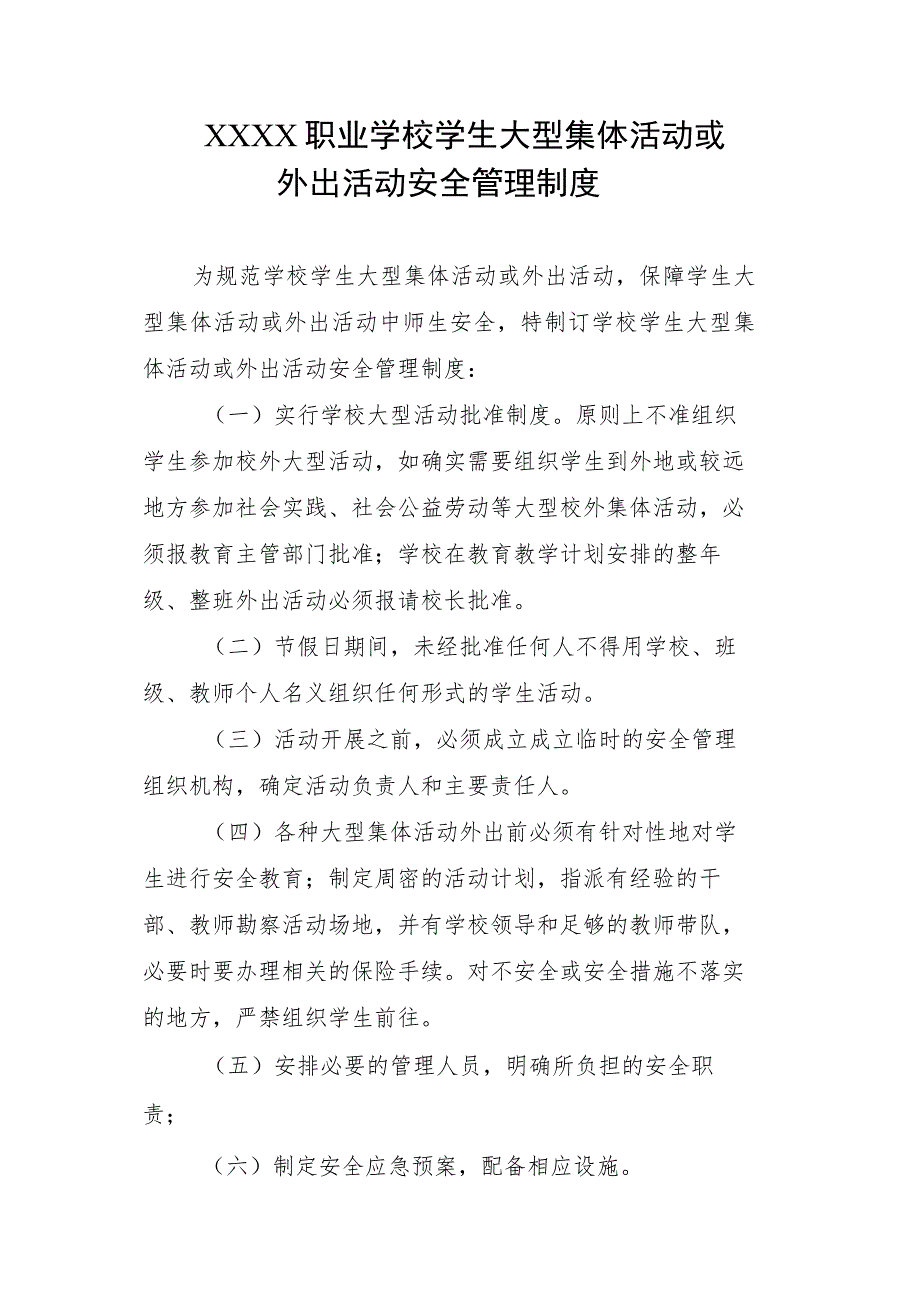 XXXX 职业学校学生大型集体活动或
外出活动安全管理制度
为规范学校学生大型集体活动或外出活动，保障学生大
型集体活动或外出活动中师生安全，特制订学校学生大型集
体活动或外出活动安全管理制度：
（一）实行学校大型活动批准制度。原则上不准组织
学生参加校外大型活动，如确实需要组织学生到外地或较远
地方参加社会实践、社会公益劳动等大型校外集体活动，必
须报教育主管部门批准；学校在教育教学计划安排的整年
级、整班外出活动必须报请校长批准。
（二）节假日期间，未经批准任何人不得用学校、班
级、教师个人名义组织任何形式的学生活动。
（三）活动开展之前，必须成立成立临时的安全管理
组织机构，确定活动负责人和主要责任人。
（四）各种大型集体活动外出前必须有针对性地对学
生进行安全教育；制定周密的活动计划，指派有经验的干
部、教师勘察活动场地，并有学校领导和足够的教师带队，
必要时要办理相关的保险手续。对不安全或安全措施不落实
的地方，严禁组织学生前往。
（五）安排必要的管理人员，明确所负担的安全职
责；
（六）制定安全应急预案，配备相应设施。